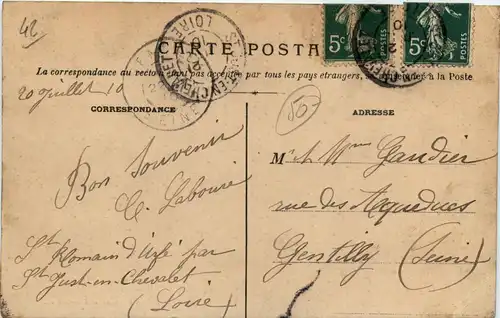 42
CARTE POSTA
5c 5c
La correspondance au recto n'est pas acceptée par tous les pays étrangers, se renseigner à la Poste
20 juillet 10
CORRESPONDANCE
Bon Souvenir
C. Laboure
St Romain d'Urfé par
St Just-en-Chevalet
(Loire)
50-
ADRESSE
M. & Mme Gaudier
rue des Aqueducs
Gentilly (Seine)